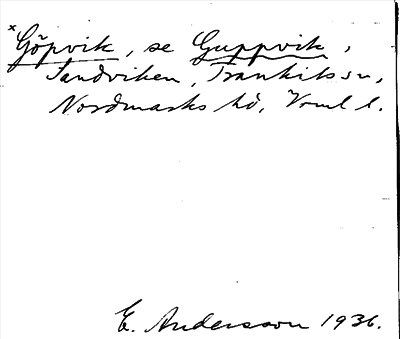 ×Göpvik, se Guppvik,
Sandviken, Trankils sn,
Nordmarks hd, Vrml l.
E. Andersson 1936.